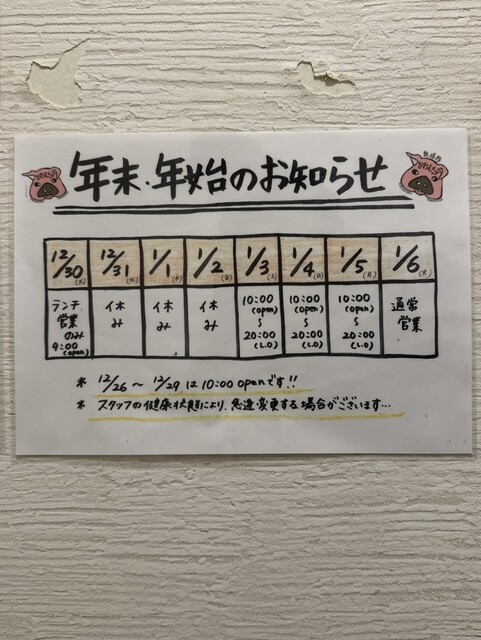 年末・年始のお知らせ
12/30(火) 12/31(水) 1/1(木) 1/2(金) 1/3(土) 1/4(日) 1/5(月) 1/6(火)
ランチ営業のみ 9:00(open)
休み
休み
休み
10:00(open)～20:00(L.O)
10:00(open)～20:00(L.O)
10:00(open)～20:00(L.O)
通常営業
※ 12/26～12/29は10:00 openです!!
※ スタッフの健康状態により、急遽変更する場合がございます…